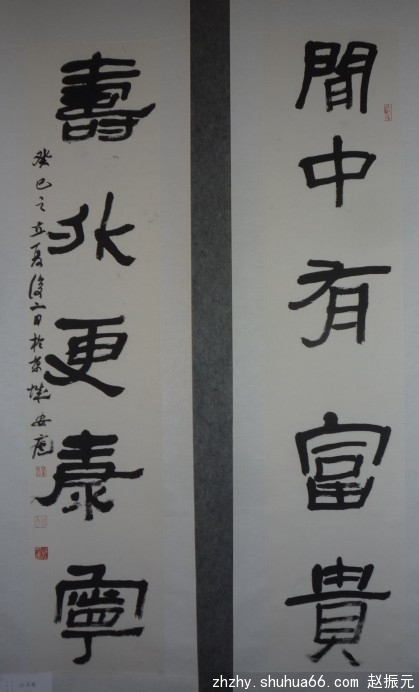 閒中有富貴
壽外更康寧
癸巳之立夏後二日於京
zhzhy.shuhua66.com 赵振元